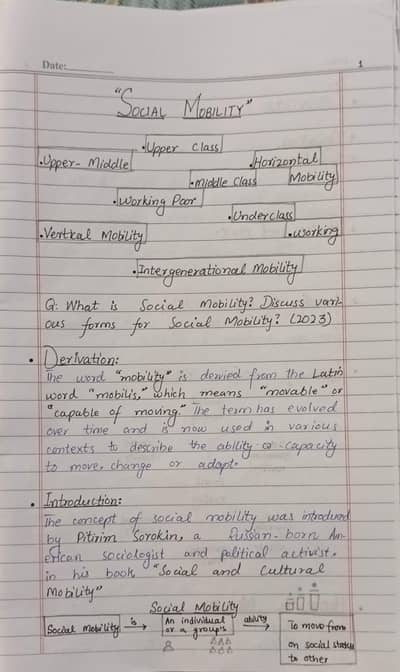 Date:
1
"SOCIAL MOBILITY"
.Upper Class
.Upper-Middle
.Horizontal
Mobility
.Middle Class
.Working Poor
.Underclass
.Vertical Mobility
.working
.Intergenerational Mobility
Q: What is Social Mobility? Discuss vari-
ous forms for Social Mobility? (2023)
• Derivation:
The word "mobility" is derived from the Latin
word "mobilis," which means "movable" or
"capable of moving." The term has evolved
over time and is now used in various
contexts to describe the ability or capacity
to move, change or adapt.
• Introduction:
The concept of social mobility was introduced
by Pitirim Sorokin, a Russian-born Am-
erican sociologist and political activist.
in his book "Social and Cultural
Mobility"
Social Mobility
Social Mobility is An individual ability To move from
or a groups on social status
to other